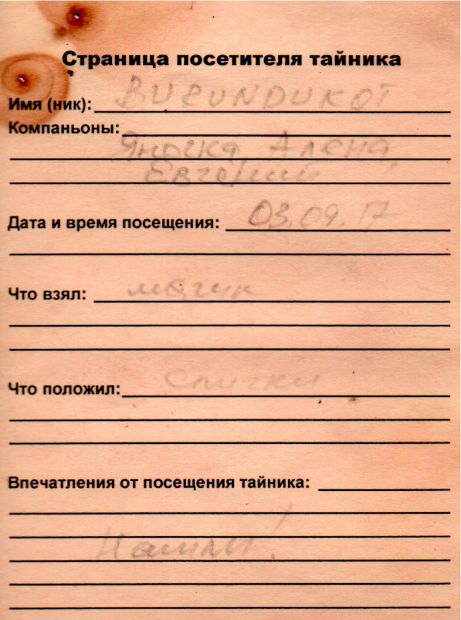 Страница посетителя тайника
Имя (ник): BURUNDUKOT
Компаньоны:
Яночка, Алена,
Евгений
Дата и время посещения: 03.09.17
Что взял:
Что положил: Спички
Впечатления от посещения тайника:
Нашли!